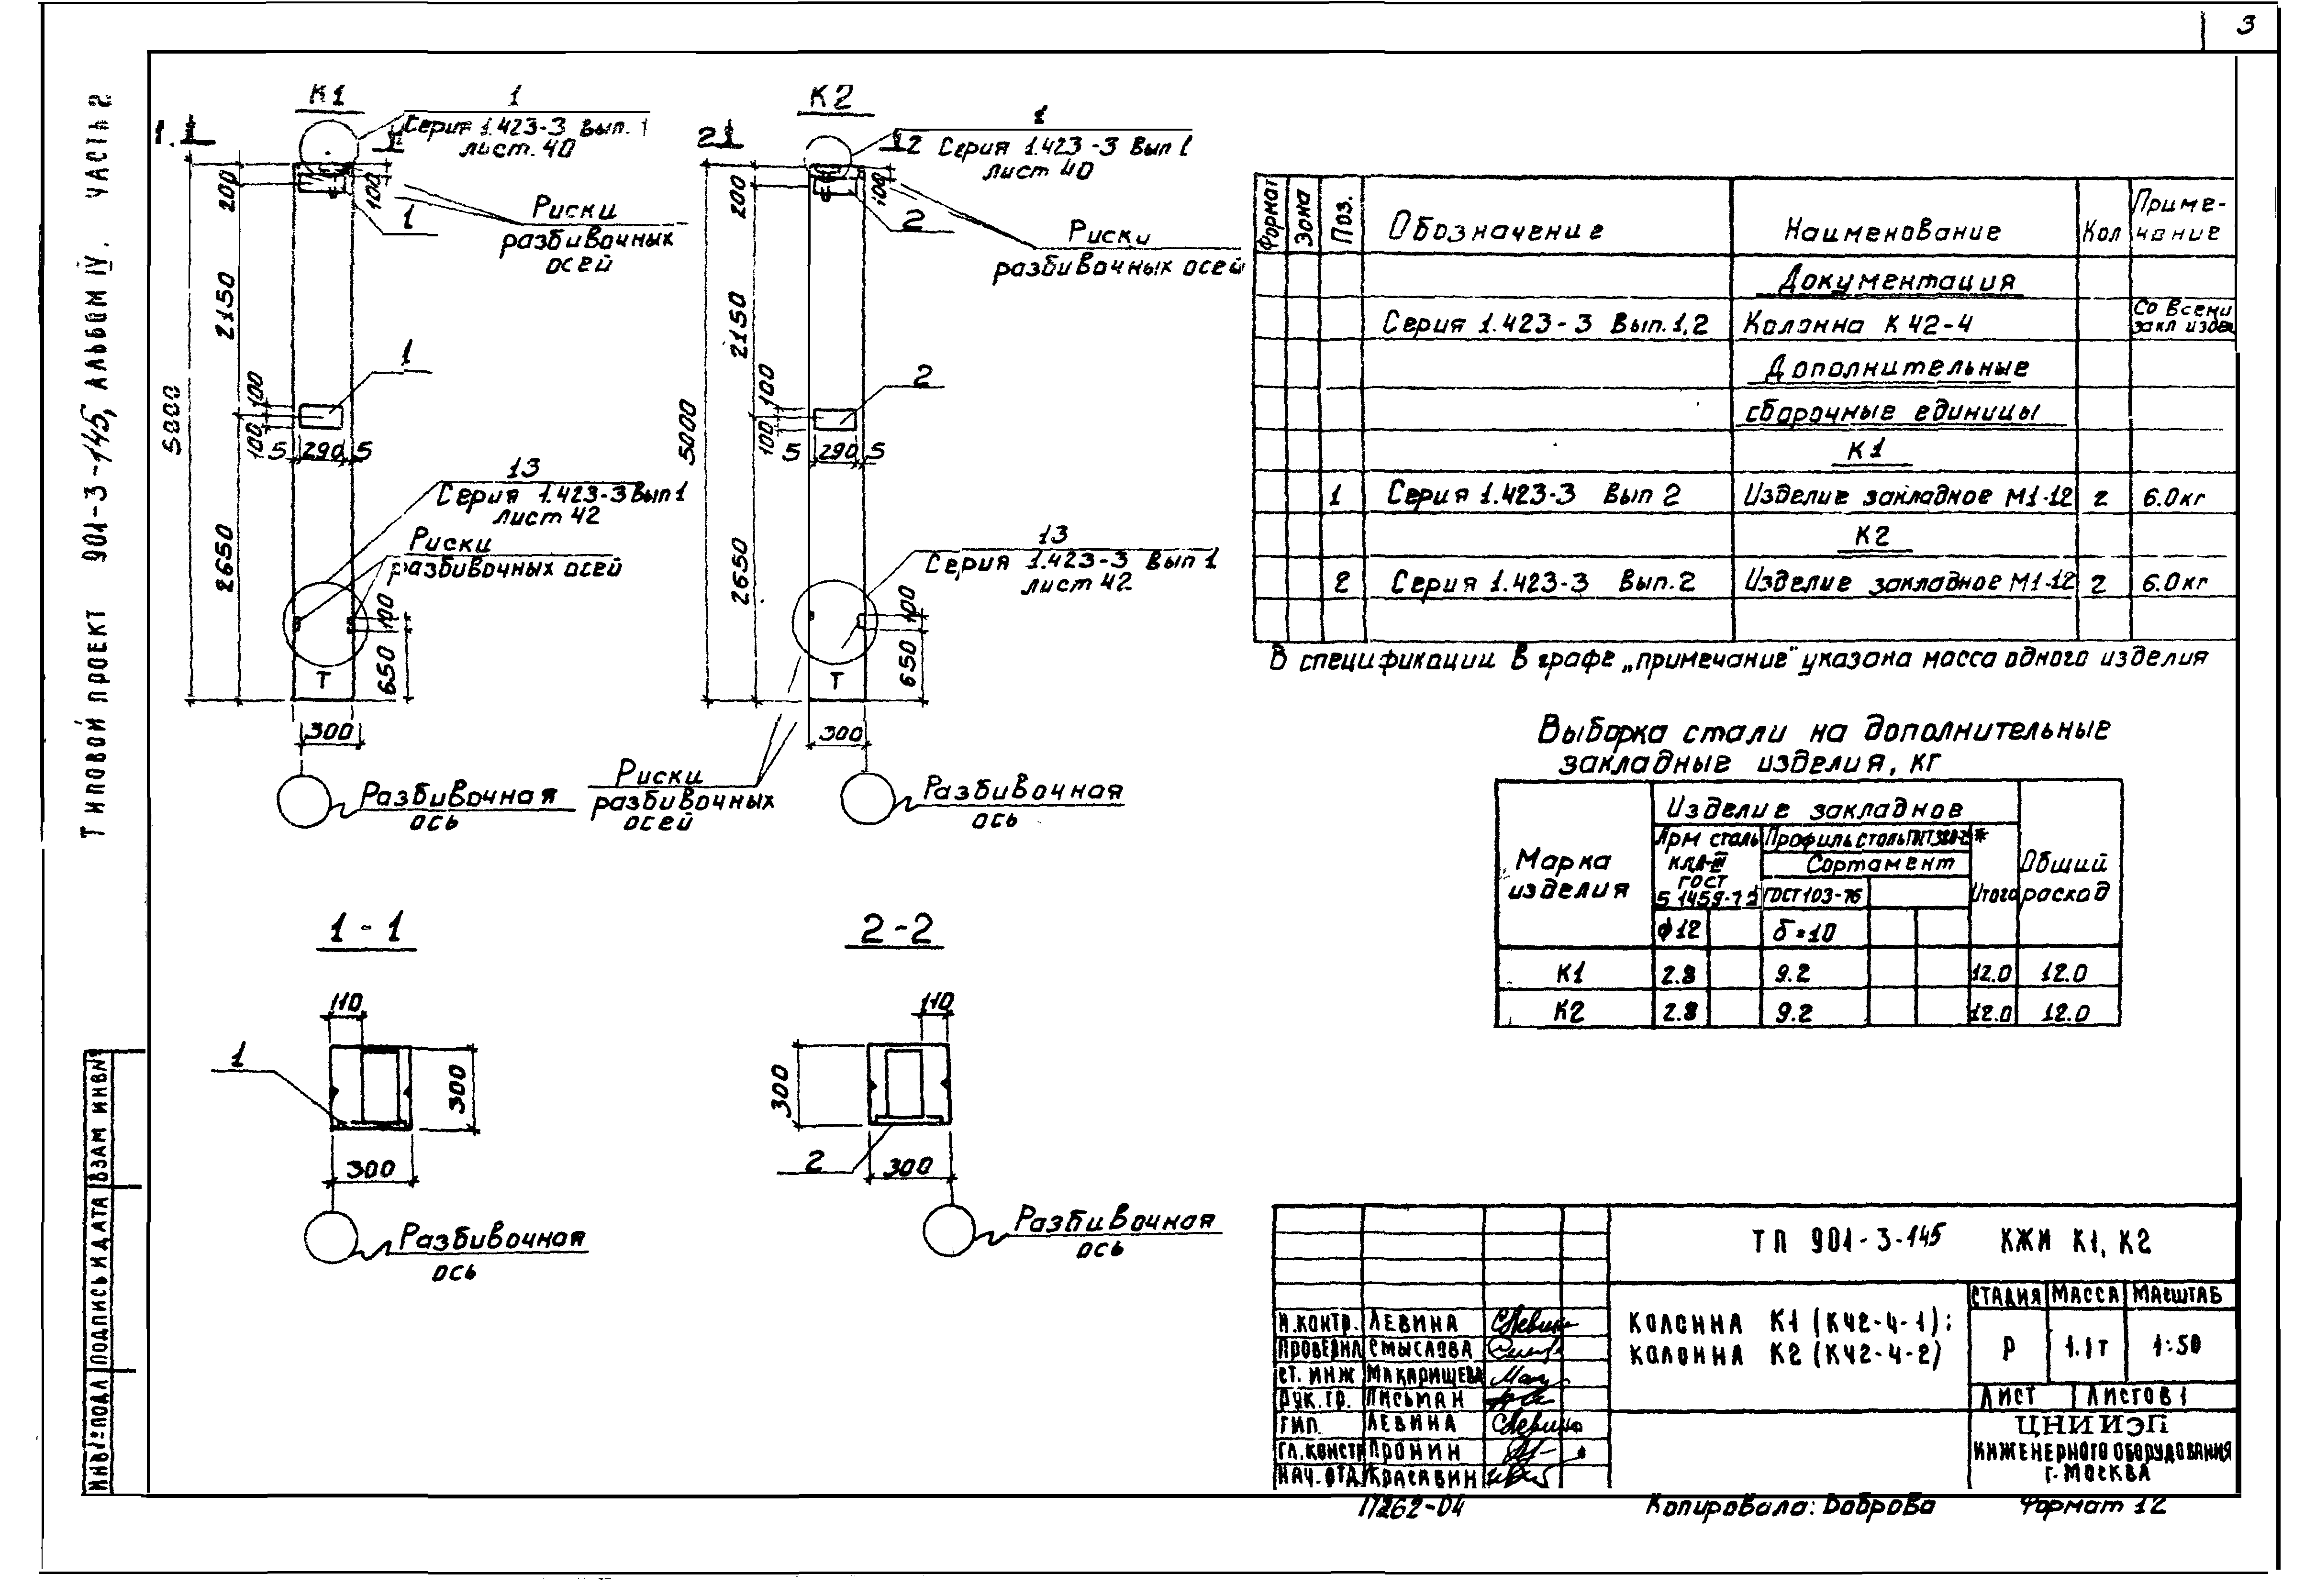 3
Типовой проект 901-3-145, Альбом IV. Часть 2
К1
1
Серия 1.423-3 Вып. 1
лист. 40
200
100
1
Риски
разбивочных
осей
2150
1
5000
100
100
5 290 5
13
Серия 1.423-3 Вып 1
лист 42
Риски
разбивочных осей
2650
100
650
Т
300
Разбивочная
ось
К2
1
Серия 1.423-3 Вып 1
лист 40
2
200
100
2
Риски
разбивочных осей
2150
2
5000
100
100
5 290 5
13
Серия 1.423-3 Вып 1
лист 42
2650
100
650
Т
300
Риски
разбивочных
осей
Разбивочная
ось
1-1
110
1
300
300
Разбивочная
ось
2-2
110
300
2
300
Разбивочная
ось
Формат Зона Поз. Обозначение Наименование Кол Приме-
чание
Документация
Серия 1.423-3 Вып. 1,2 Колонна К42-4 Со всеми
закл издел
Дополнительные
сборочные единицы
К1
1 Серия 1.423-3 Вып 2 Изделие закладное М1-12 2 6.0кг
К2
2 Серия 1.423-3 Вып. 2 Изделие закладное М1-12 2 6.0кг
В спецификации в графе „примечание" указана масса одного изделия
Выборка стали на дополнительные
закладные изделия, кг
Марка
изделия
Изделие закладное
Арм сталь
кл.А-III
ГОСТ
Профиль сталь
Сортамент
ГОСТ 103-76
Итого
Общий
расход
ϕ12 δ=10
К1 2.8 9.2 12.0 12.0
К2 2.8 9.2 12.0 12.0
ТП 901-3-145 КЖИ К1, К2
Колонна К1 (К42-4-1);
Колонна К2 (К42-4-2)
Стадия Масса Масштаб
Р 1.1т 1:50
Лист Листов 1
ЦНИИЭП
инженерного оборудования
г. Москва
Н.контр. Левина
Проверил Смыслова
Ст. инж Макарищева
Рук. гр. Письман
ГИП Левина
Гл. констр Пронин
Нач. отд Красавин
Инв № подл Подпись и дата Взам инв №
17262-04 Копировала: Боброва Формат 12